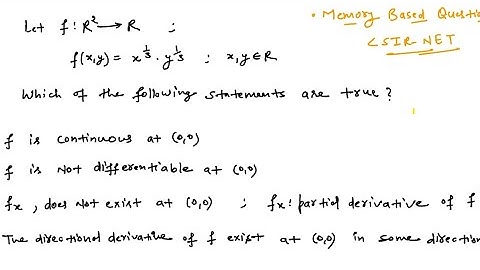 Let f : R² → R ;
• Memory Based Questio
f(x,y) = x^{1/3} · y^{1/3} ; x,y ∈ R
CSIR NET
Which of the following statements are true?
f is continuous at (0,0)
f is Not differentiable at (0,0)
fx , does Not exist at (0,0) ; fx : partial derivative of f
The directional derivative of f exist at (0,0) in some direction